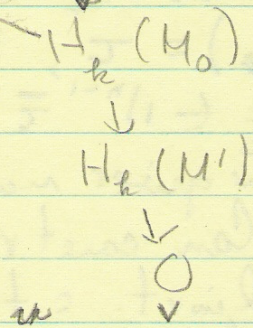 H_k (M_0)
↓
H_k (M')
↓
0